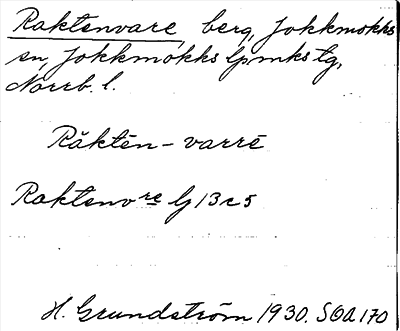 Raktenvare, berg, Jokkmokks
sn, Jokkmokks lpmks tg,
Norrb. l.
Råktēn-varrē
Raktenvre lj 13c5
H. Grundström 1930. SOA 170